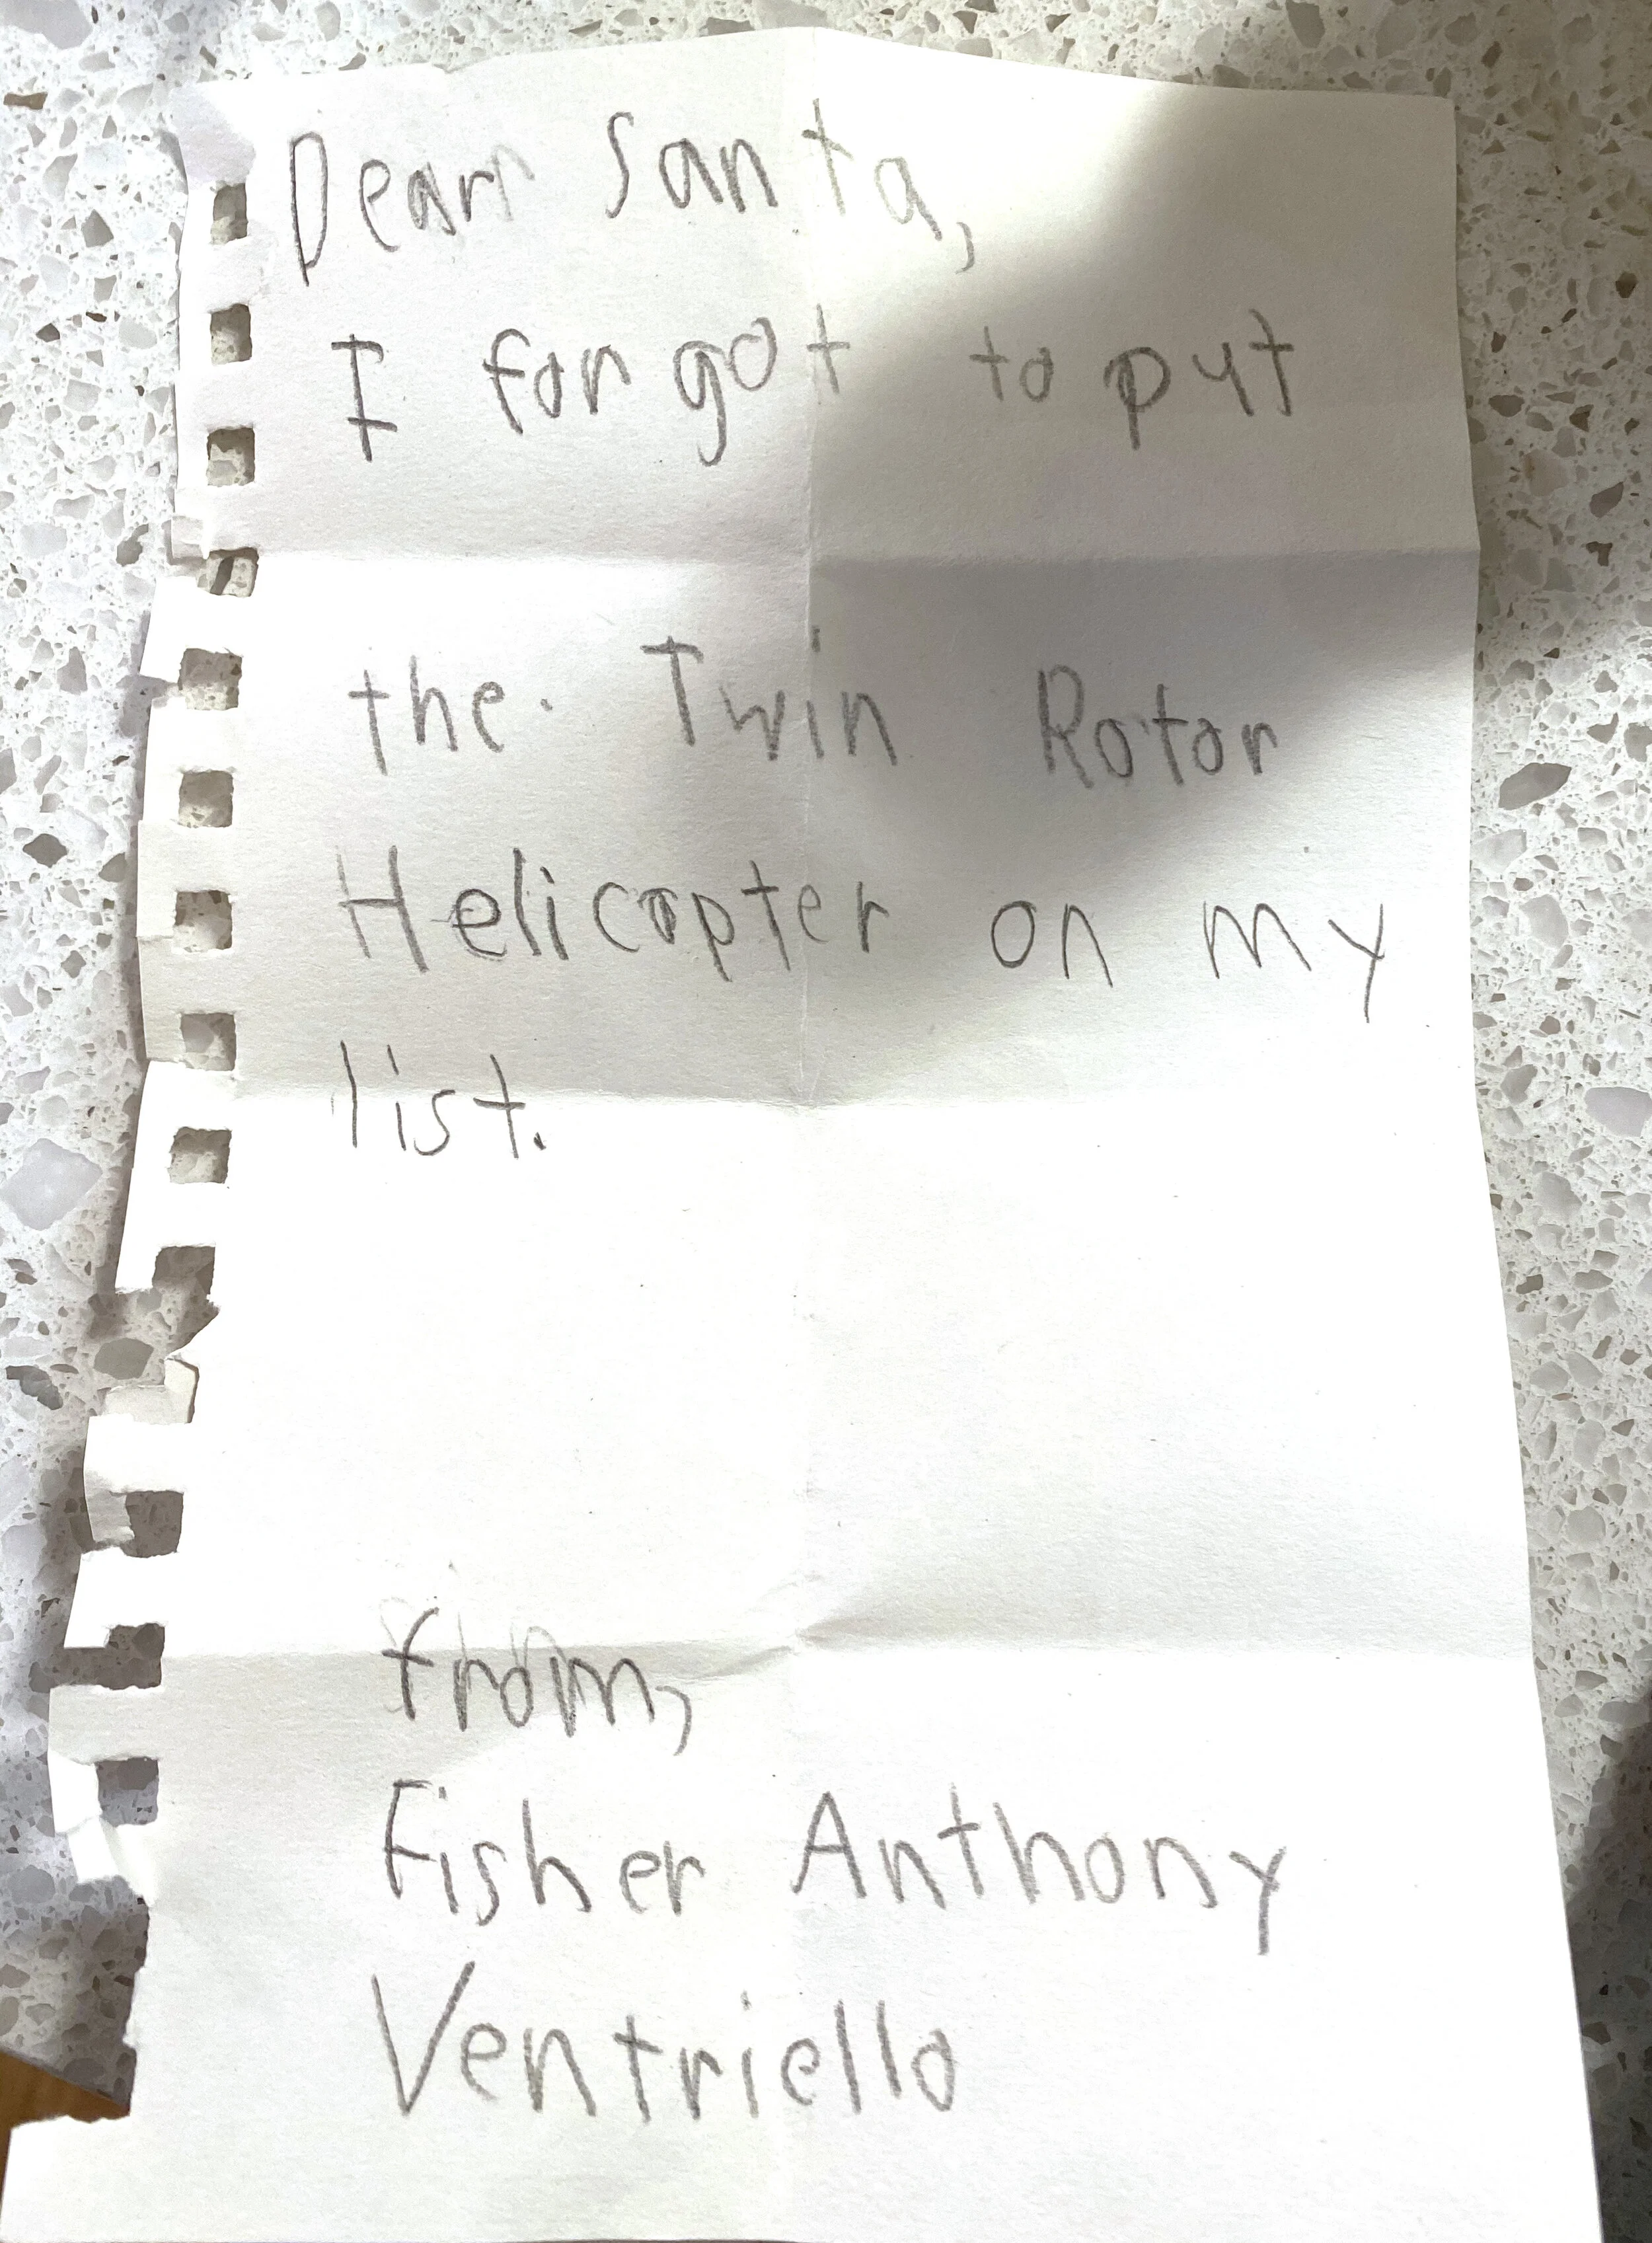 Dear Santa,
I forgot to put
the Twin Rotor
Helicopter on my
list.
from,
Fisher Anthony
Ventriello